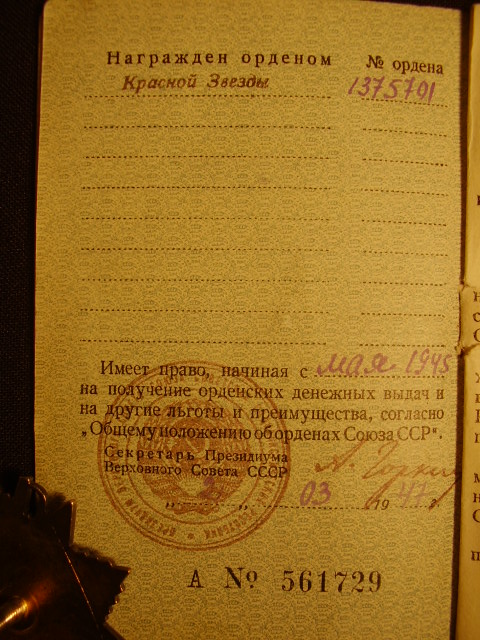 Награжден орденом № ордена
Красной Звезды 1375791
Имеет право, начиная с мая 1945
на получение орденских денежных выдач и
на другие льготы и преимущества, согласно
„Общему положению об орденах Союза ССР".
Секретарь Президиума
Верховного Совета СССР А. Горкин
03 1947 г.
А № 561729